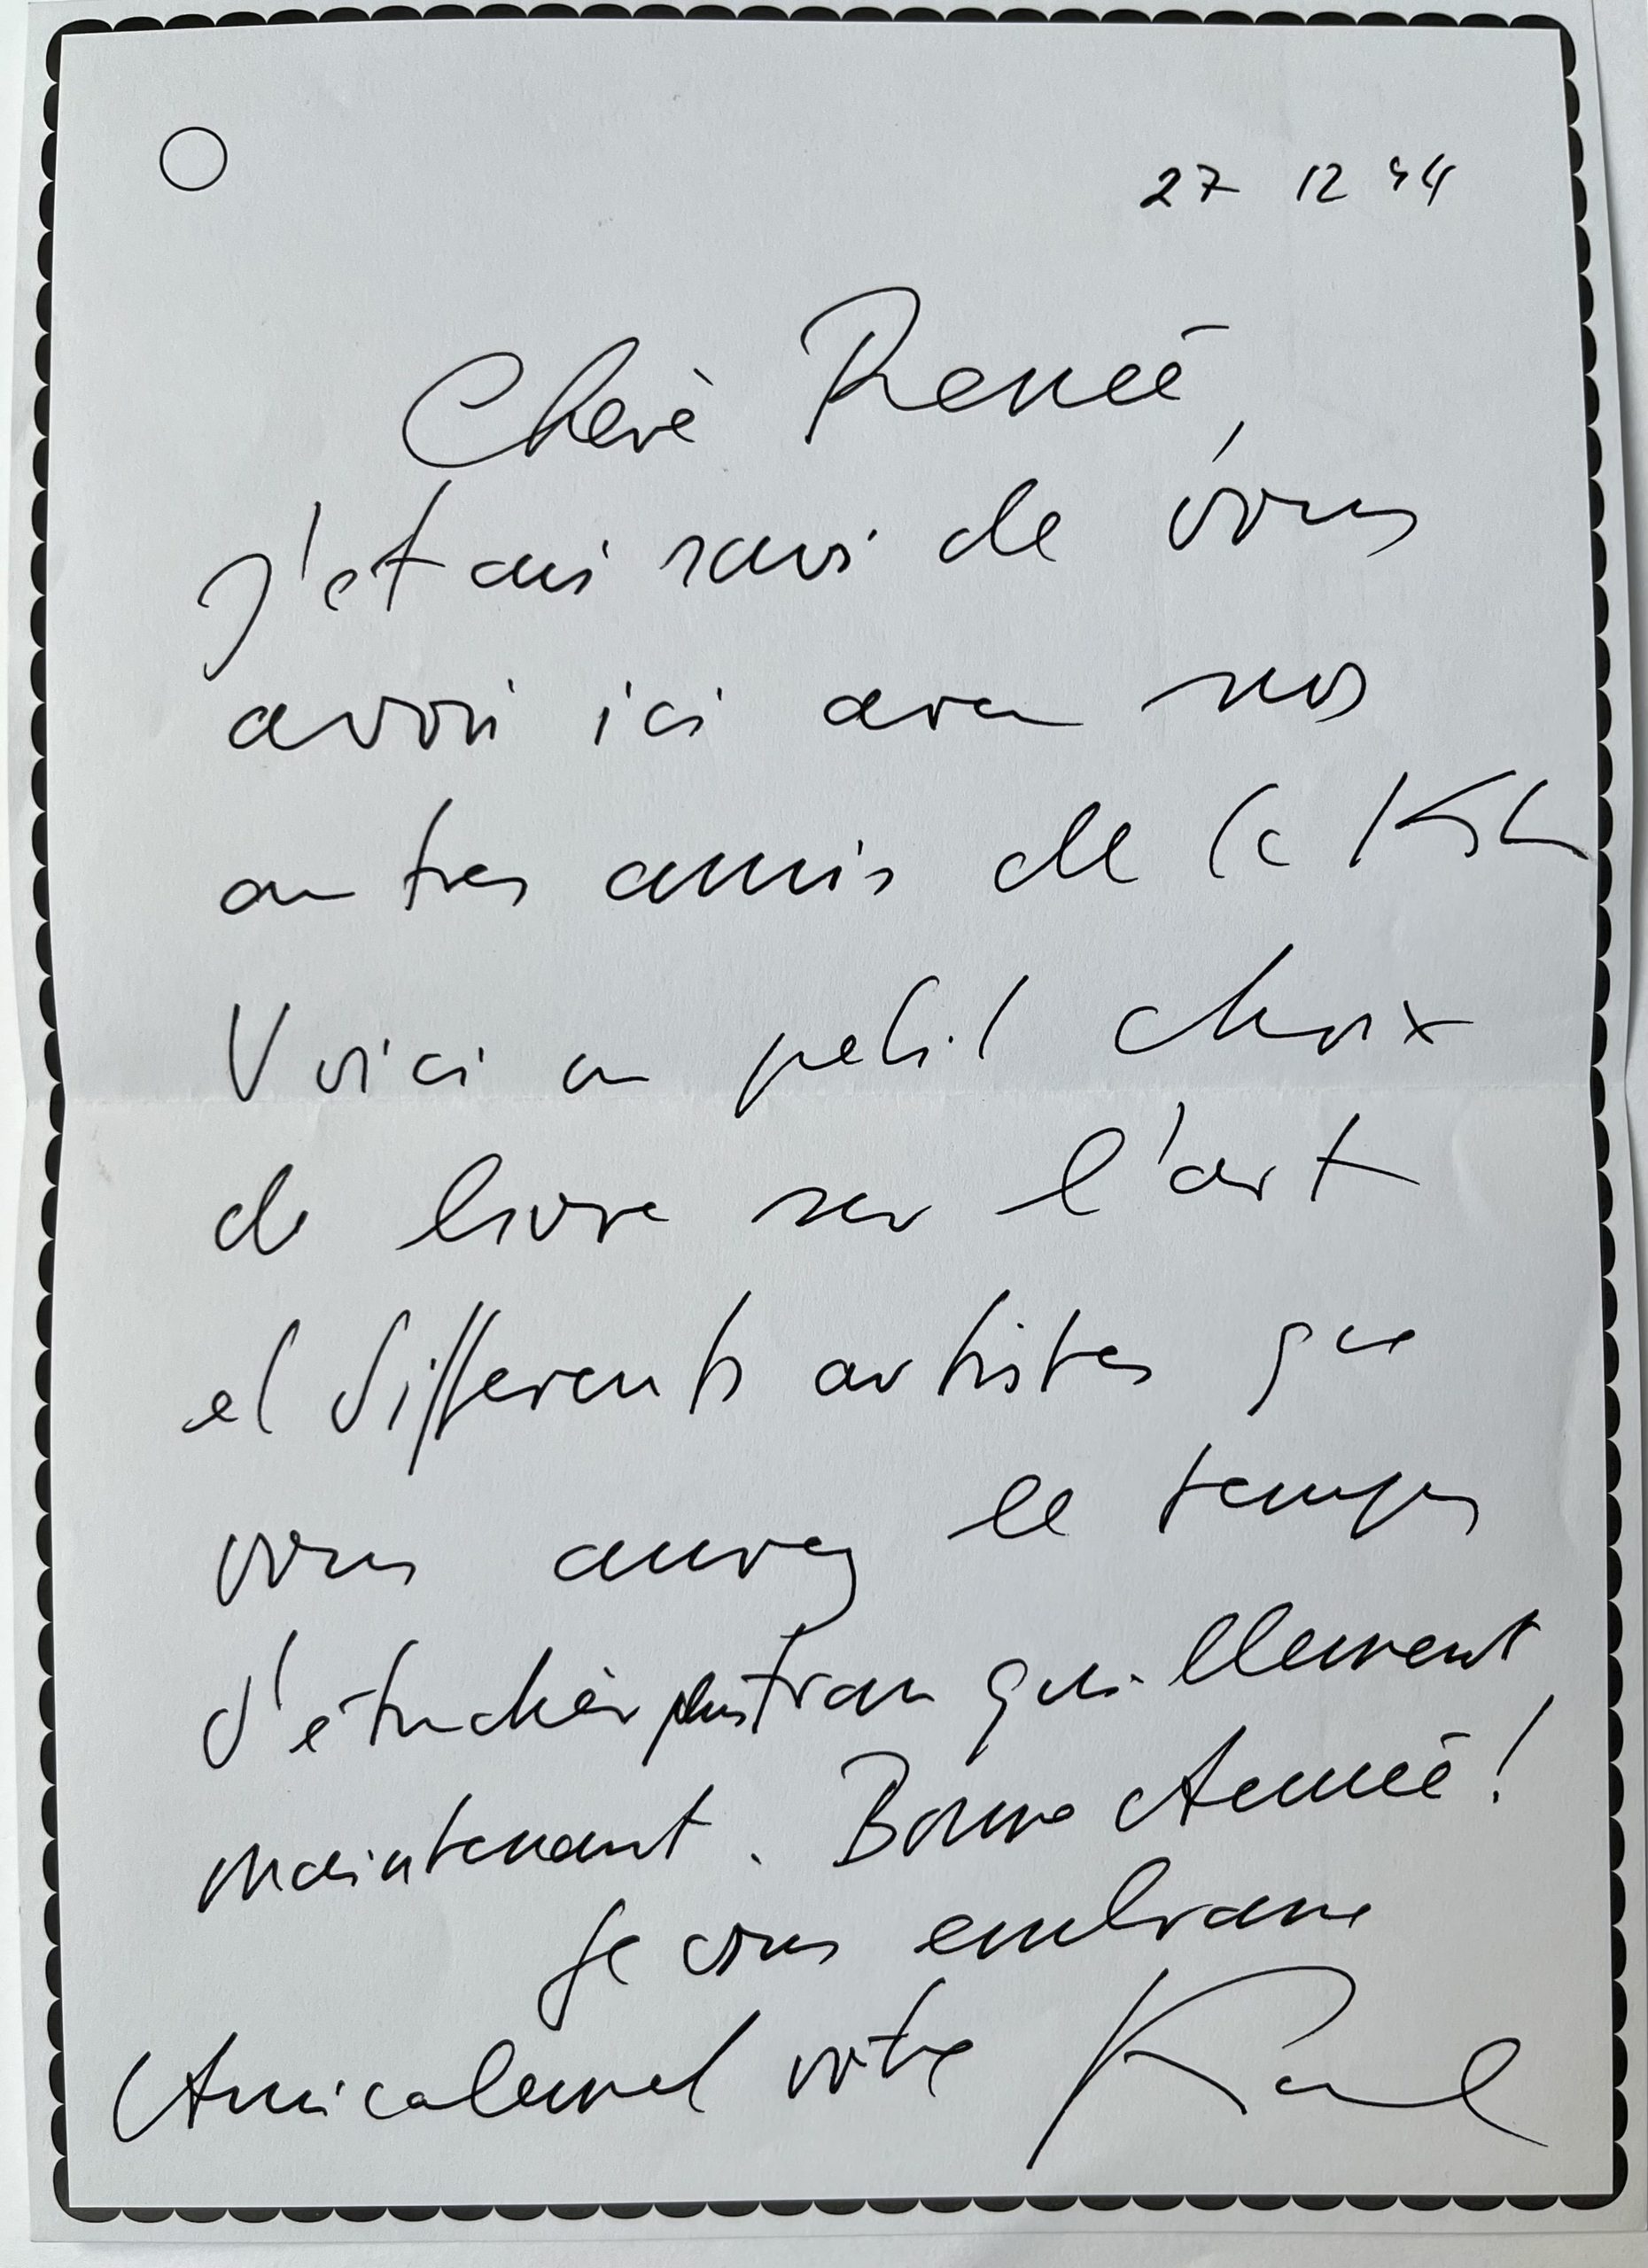 27 12 94
Chère Renée,
J'etais ravi de vous
avoir ici avec nos
autres amis de la
Voici un petit choix
de livre sur l'art
et differents artistes que
vous aurez le temps
d'étudier plus tranquillement
maintenant. Bonne Année!
Je vous embrasse
Amicalement votre Karl